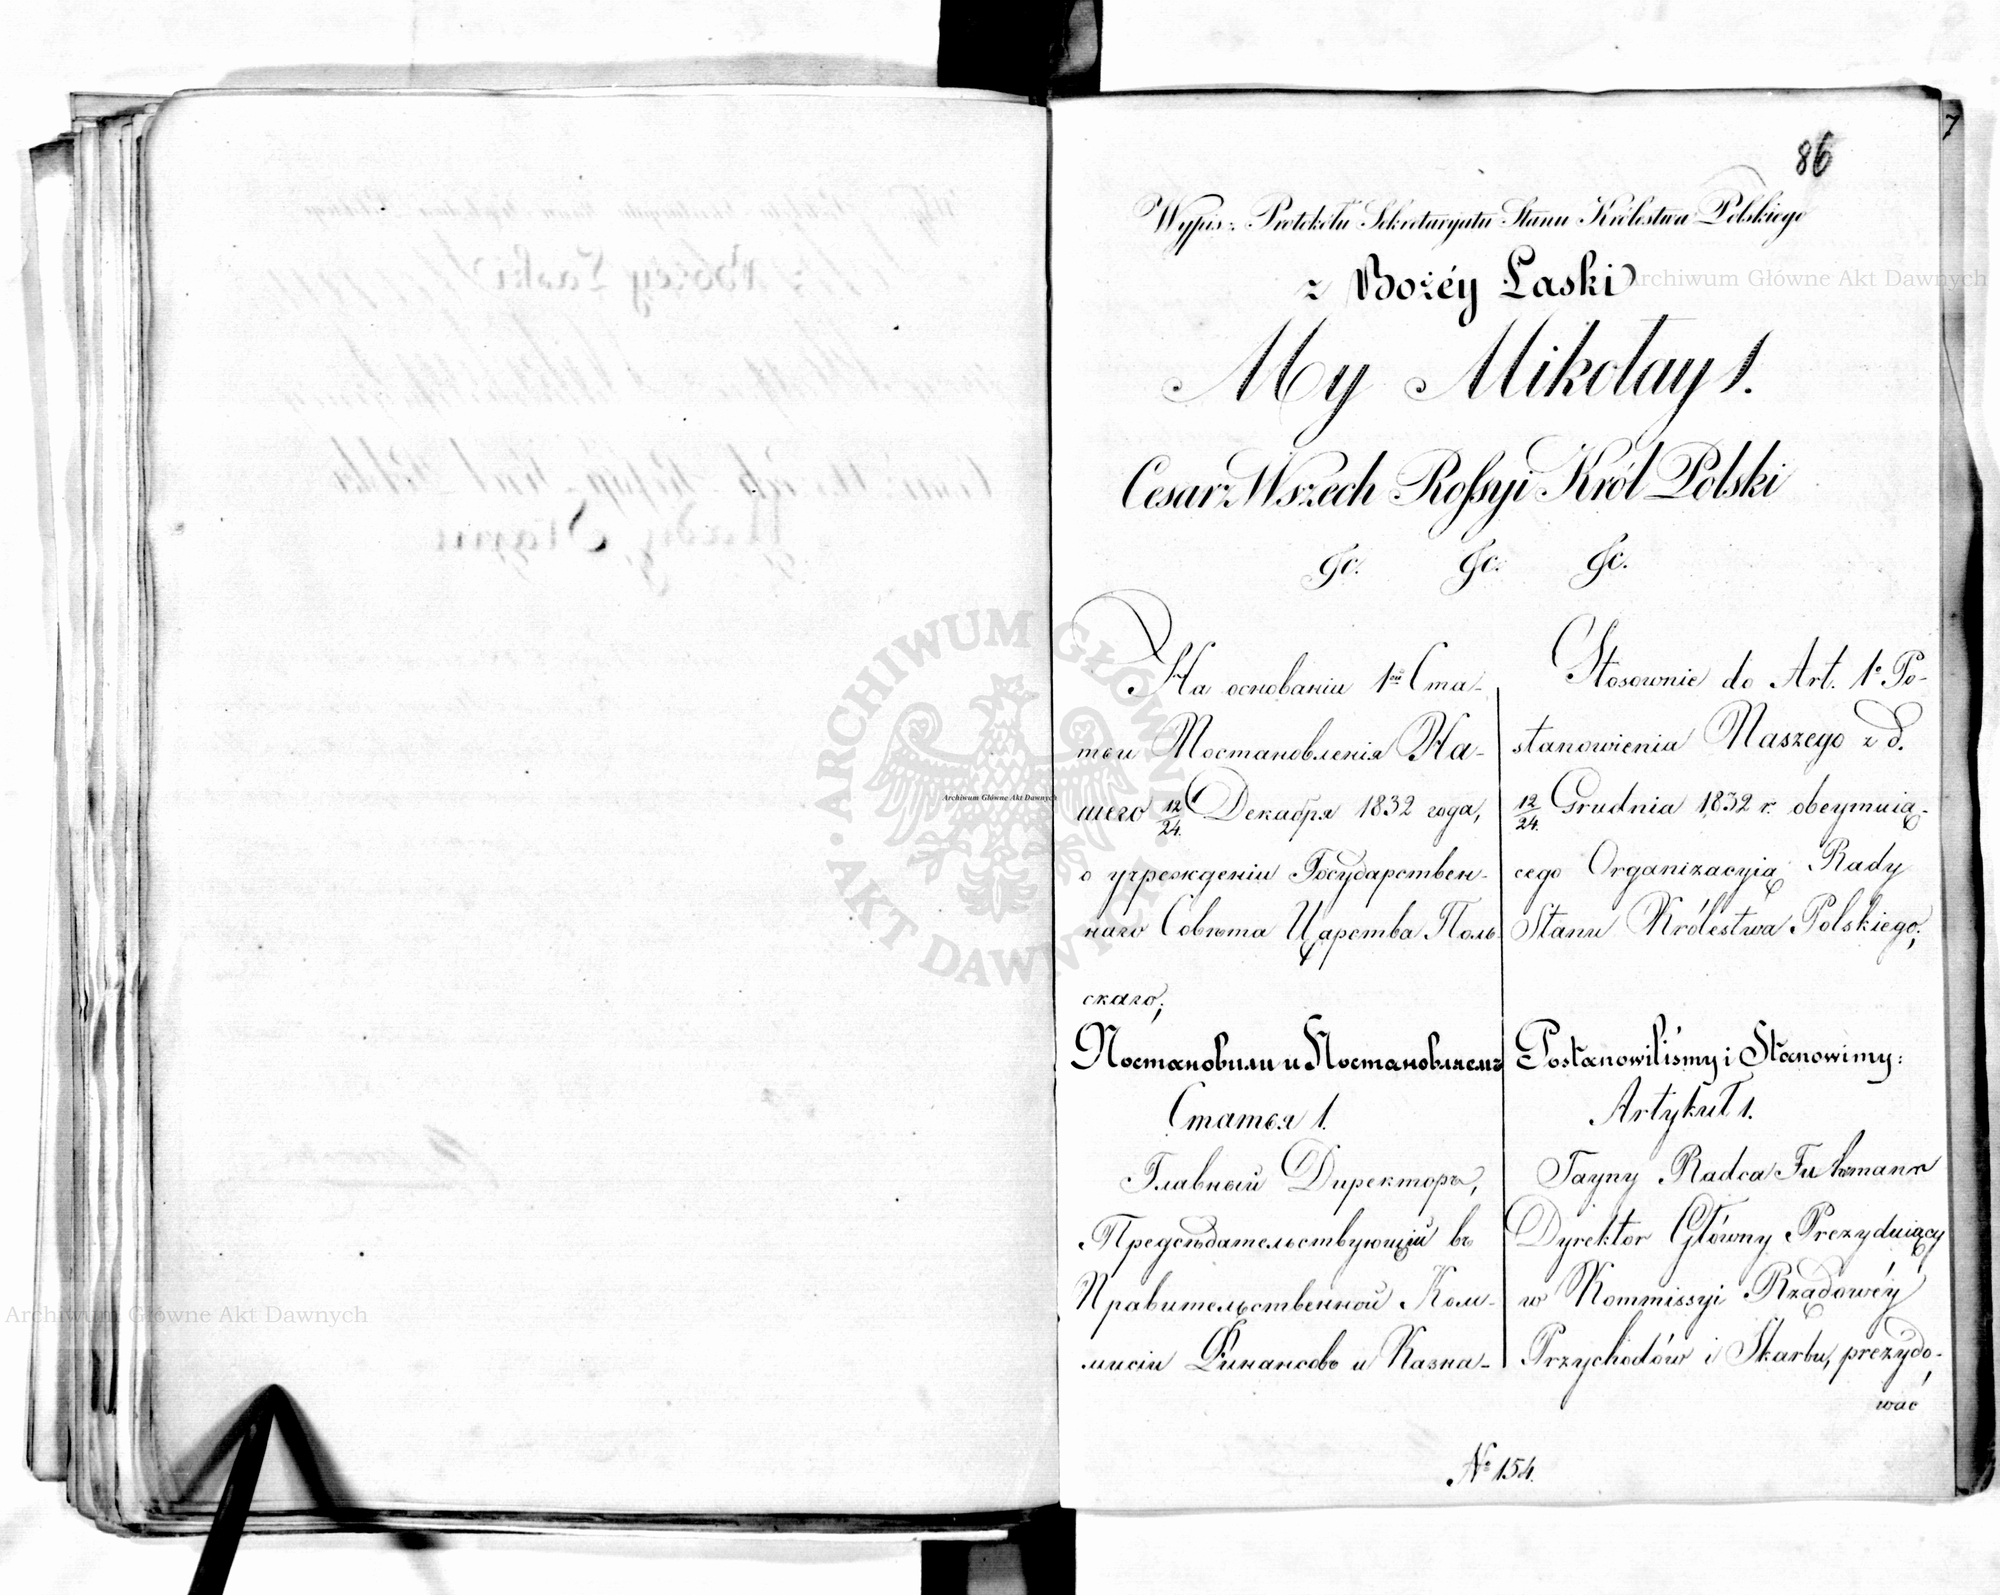 86
7
Wypis z Protokółu Sekretaryatu Stanu Królestwa Polskiego
z Bożéy Łaski
My Mikołay 1.
Cesarz Wszech Rossyi Król Polski
&c. &c. &c.
На основаніи 1ой Ста-
тьи Постановленія На-
шего 12/24. Декабря 1832 года,
о учрежденіи Государствен-
наго Совѣта Царства Поль-
скаго;
Постановили и Постановляемъ
Статья 1.
Главный Директоръ,
Предсѣдательствующій въ
Правительственной Ком-
мисіи Финансовъ и Казна-
Stosownie do Art. 1º Po-
stanowienia Naszego z d.
12/24. Grudnia 1832 r. obeymuią-
cego Organizacyią Rady
Stanu Królestwa Polskiego;
Postanowiliśmy i Stanowimy:
Artykuł 1.
Tayny Radca Fuhrmann
Dyrektor Główny Prezyduiący
w Kommissyi Rządowéy
Przychodów i Skarbu, prezydo-
wać
Nº 154.
Archiwum Główne Akt Dawnych
Archiwum Główne Akt Dawnych
Archiwum Główne Akt Dawnych
· ARCHIWUM GŁÓWNE ·
AKT DAWNYCH